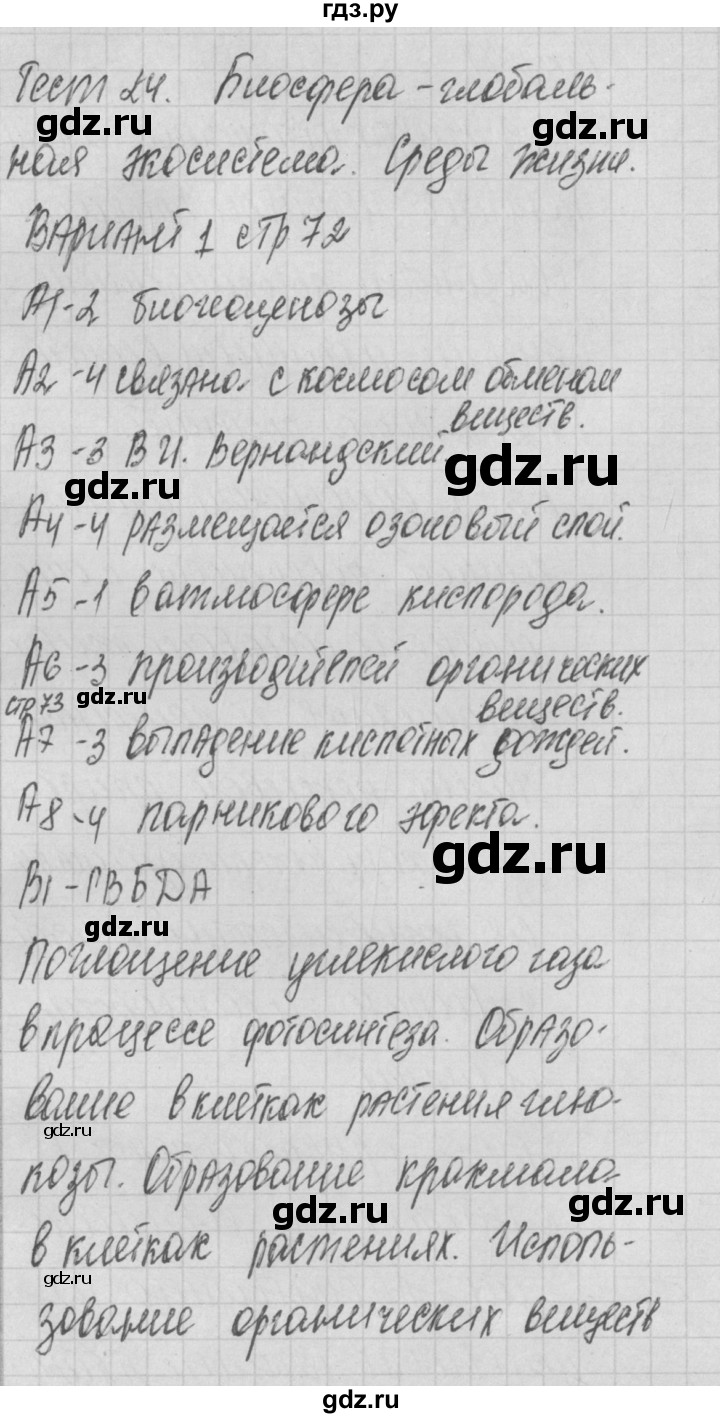 гдз.ру
Тест 24. Биосфера - глобаль-
gdz.ru
gdz.ru
ная экосистема. Среды жизни.
Вариант 1 стр 72
А1-2 биогеоценозы
А2-4 связана с космосом обменом
веществ.
А3-3 В И. Вернандский
gdz.ru
gdz.ru
А4-4 размещается озоновый слой.
А5-1 в атмосфере кислорода.
А6-3 производителей органических
веществ.
стр 73
gdz.ru
А7-3 выпадение кислотных дождей.
А8-4 парникового эфекта.
gdz.ru
В1-ГВБДА
gdz.ru
Поглощение углекислого газа
в процессе фотосинтеза. Образо-
вание в клетках растения глю-
gdz.ru
козы. Образование крахмала
gdz.ru
gdz.ru
в клетках растениях. Исполь-
gdz.ru
зование органических веществ
gdz.ru